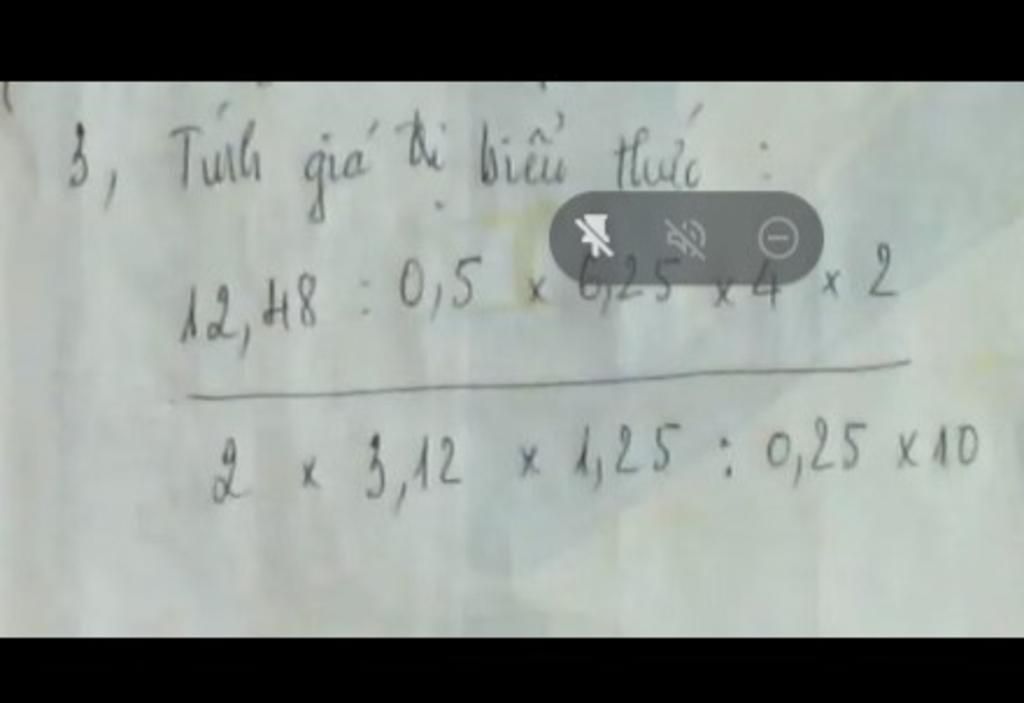 3, Tính giá trị biểu thức :
12,48 : 0,5 x 6,25 x 4 x 2
2 x 3,12 x 1,25 : 0,25 x 10